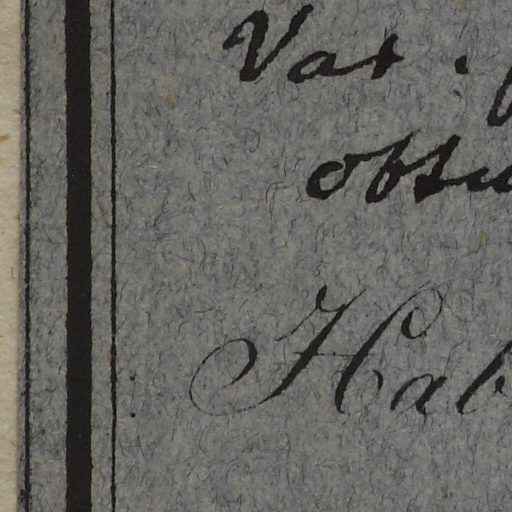 Var.
obs
Hab